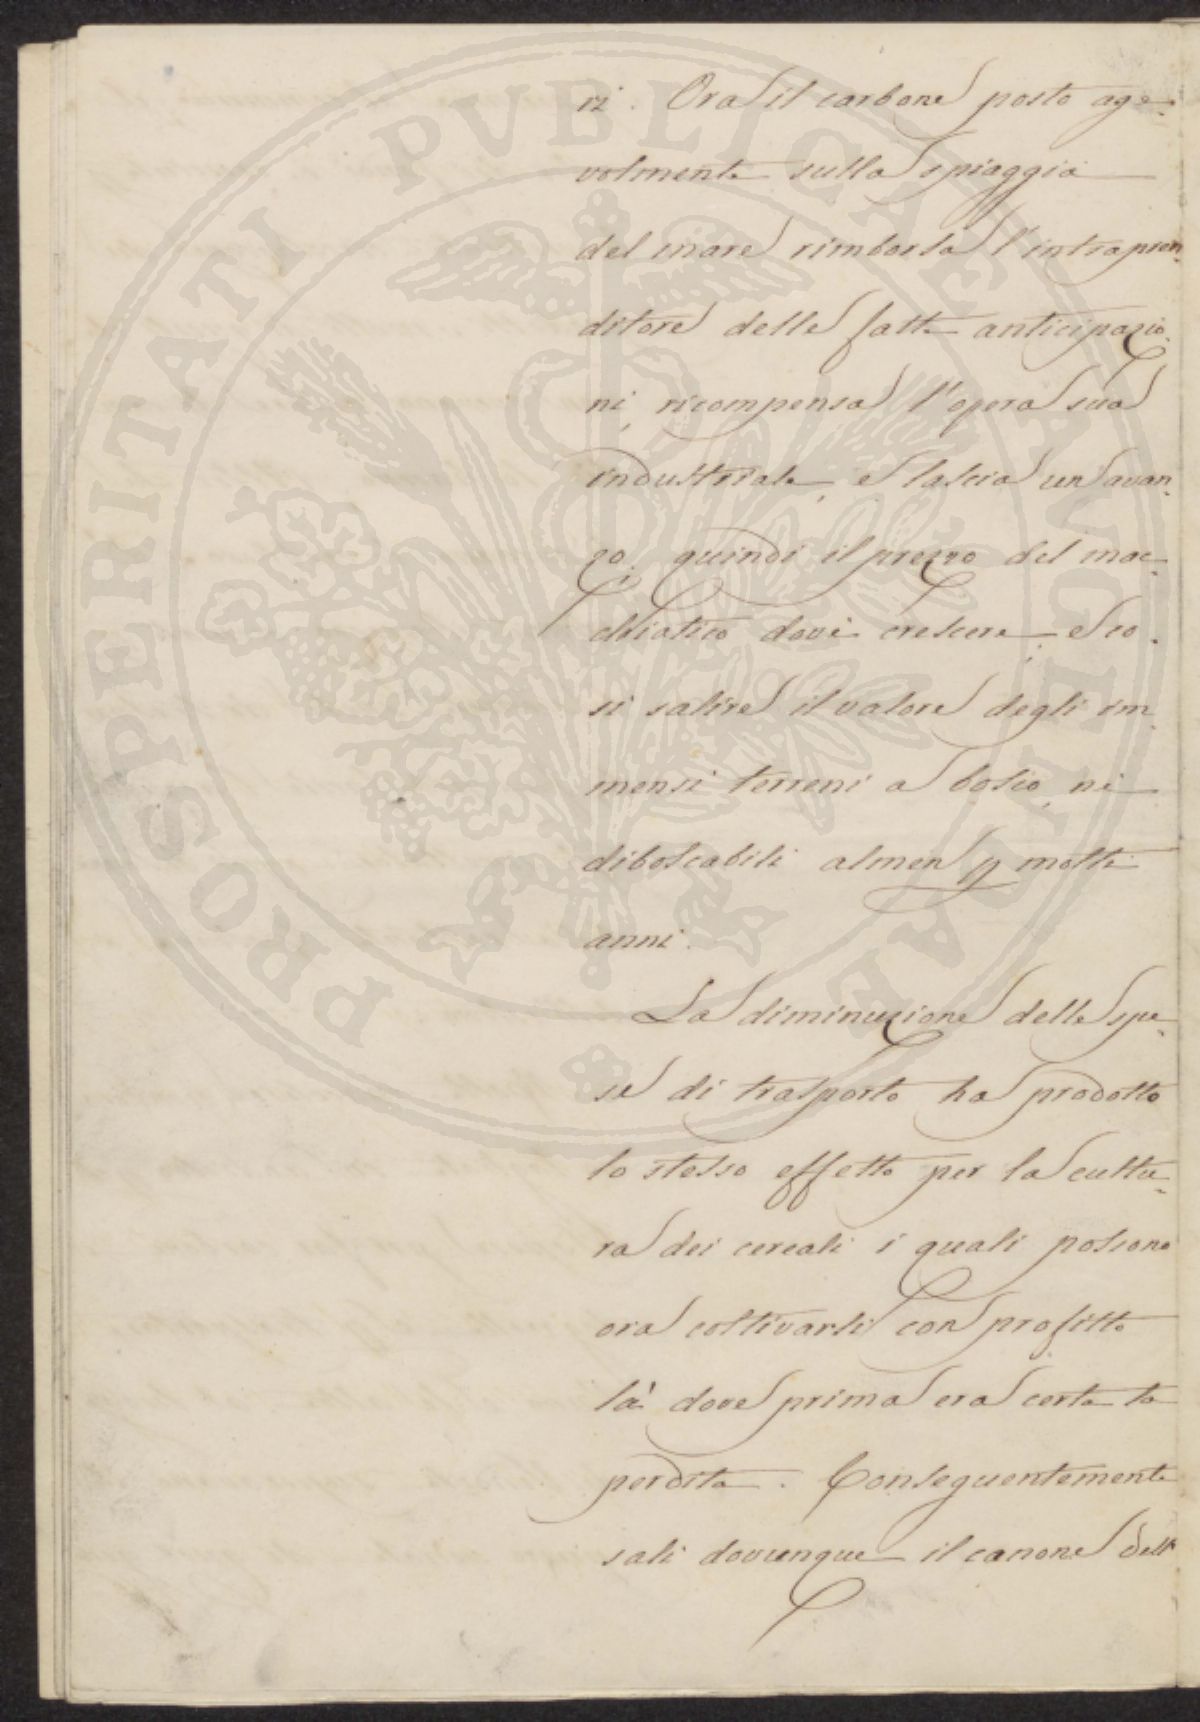 ri. Ora il carbone posto age-
volmente sulla spiaggia
del mare rimborsa l'intrapren-
ditore delle fatte anticipazio-
ni, ricompensa l'opera sua
industriale, e lascia un avan-
zo; quindi il prezzo del mac-
chiatico dovè crescere, e co-
si salire il valore degli im-
mensi terreni a bosco, nè
diboscabili almen p molti
anni.
La diminuzione delle spe-
se di trasporto ha prodotto
lo stesso effetto per la cultu-
ra dei cereali i quali possono
ora coltivarsi con profitto
là dove prima era certa la
perdita. Conseguentemente
sali dovunque il canone dell'
PROSPERITATI PVBLICAE AVGENDAE